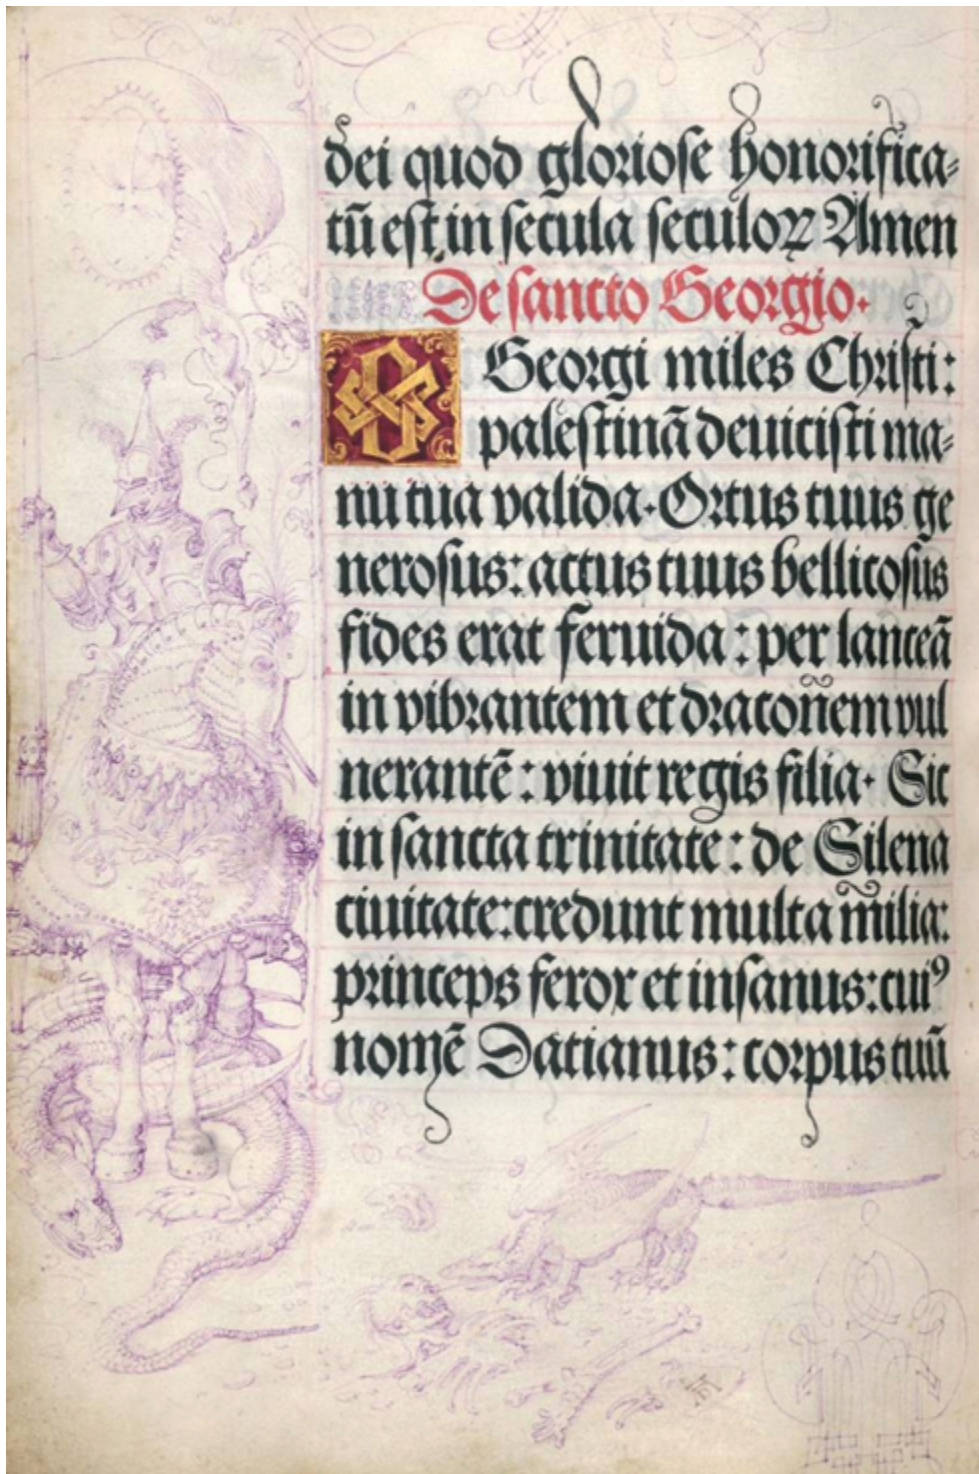 dei quod gloriose honorifica⸗
tū est in secula seculoꝝ Amen
De sancto Georgio.
O Georgi miles Christi:
palestinā deuicisti ma⸗
nu tua valida. Ortus tuus ge
nerosus: actus tuus bellicosus
fides erat feruida: per lanceā
in vibrantem et draconem vul
nerantē: viuit regis filia. Sic
in sancta trinitate: de Silena
ciuitate: credunt multa milia:
princeps ferox et insanus: cuiꝰ
nomē Dacianus: corpus tuū